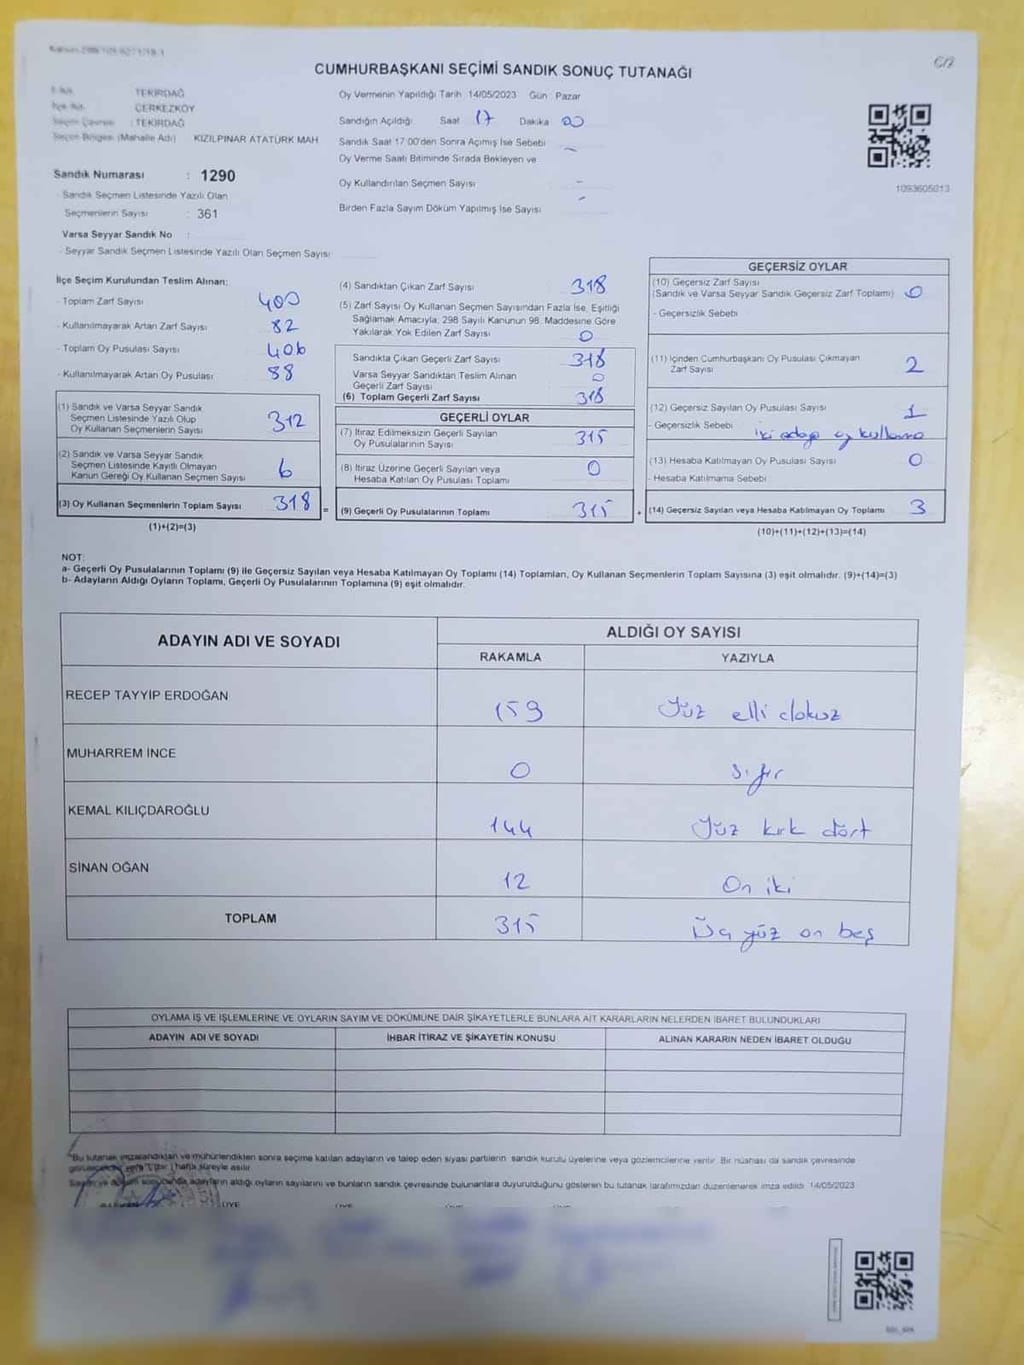 CUMHURBAŞKANI SEÇİMİ SANDIK SONUÇ TUTANAĞI
TEKİRDAĞ
ÇERKEZKÖY
Seçim Çevresi : TEKİRDAĞ
Seçim Bölgesi (Mahalle Adı) KIZILPINAR ATATÜRK MAH
Sandık Numarası : 1290
- Sandık Seçmen Listesinde Yazılı Olan
Seçmenlerin Sayısı : 361
Varsa Seyyar Sandık No :
- Seyyar Sandık Seçmen Listesinde Yazılı Olan Seçmen Sayısı
Oy Vermenin Yapıldığı Tarih 14/05/2023 Gün Pazar
Sandığın Açıldığı Saat 17 Dakika 00
Sandık Saat 17:00'den Sonra Açımış İse Sebebi –
Oy Verme Saati Bitiminde Sırada Bekleyen ve
Oy Kullandırılan Seçmen Sayısı –
Birden Fazla Sayım Döküm Yapılmış İse Sayısı –
1093605013
İlçe Seçim Kurulundan Teslim Alınan;
- Toplam Zarf Sayısı 400
- Kullanılmayarak Artan Zarf Sayısı 82
- Toplam Oy Pusulası Sayısı 406
- Kullanılmayarak Artan Oy Pusulası 88
(1) Sandık ve Varsa Seyyar Sandık
Seçmen Listesinde Yazılı Olup
Oy Kullanan Seçmenlerin Sayısı 312
(2) Sandık ve Varsa Seyyar Sandık
Seçmen Listesinde Kayıtlı Olmayan
Kanun Gereği Oy Kullanan Seçmen Sayısı 6
(3) Oy Kullanan Seçmenlerin Toplam Sayısı 318 =
(1)+(2)=(3)
(4) Sandıktan Çıkan Zarf Sayısı 318
(5) Zarf Sayısı Oy Kullanan Seçmen Sayısından Fazla İse, Eşitliği
Sağlamak Amacıyla, 298 Sayılı Kanunun 98. Maddesine Göre
Yakılarak Yok Edilen Zarf Sayısı 0
Sandıkta Çıkan Geçerli Zarf Sayısı 318
Varsa Seyyar Sandıktan Teslim Alınan
Geçerli Zarf Sayısı 0
(6) Toplam Geçerli Zarf Sayısı 318
GEÇERLİ OYLAR
(7) İtiraz Edilmeksizin Geçerli Sayılan
Oy Pusulalarının Sayısı 315
(8) İtiraz Üzerine Geçerli Sayılan veya
Hesaba Katılan Oy Pusulası Toplamı 0
(9) Geçerli Oy Pusulalarının Toplamı 315 +
GEÇERSİZ OYLAR
(10) Geçersiz Zarf Sayısı
(Sandık ve Varsa Seyyar Sandık Geçersiz Zarf Toplamı) 0
- Geçersizlik Sebebi
(11) İçinden Cumhurbaşkanı Oy Pusulası Çıkmayan
Zarf Sayısı 2
(12) Geçersiz Sayılan Oy Pusulası Sayısı 1
- Geçersizlik Sebebi iki adaya oy kullanma
(13) Hesaba Katılmayan Oy Pusulası Sayısı 0
- Hesaba Katılmama Sebebi
(14) Geçersiz Sayılan veya Hesaba Katılmayan Oy Toplamı 3
(10)+(11)+(12)+(13)=(14)
NOT:
a- Geçerli Oy Pusulalarının Toplamı (9) ile Geçersiz Sayılan veya Hesaba Katılmayan Oy Toplamı (14) Toplamları, Oy Kullanan Seçmenlerin Toplam Sayısına (3) eşit olmalıdır. (9)+(14)=(3)
b- Adayların Aldığı Oyların Toplamı, Geçerli Oy Pusulalarının Toplamına (9) eşit olmalıdır.
ADAYIN ADI VE SOYADI ALDIĞI OY SAYISI
RAKAMLA YAZIYLA
RECEP TAYYİP ERDOĞAN 159 Yüz elli dokuz
MUHARREM İNCE 0 Sıfır
KEMAL KILIÇDAROĞLU 144 Yüz kırk dört
SİNAN OĞAN 12 On iki
TOPLAM 315 Üç yüz on beş
OYLAMA İŞ VE İŞLEMLERİNE VE OYLARIN SAYIM VE DÖKÜMÜNE DAİR ŞİKAYETLERLE BUNLARA AİT KARARLARIN NELERDEN İBARET BULUNDUKLARI
ADAYIN ADI VE SOYADI İHBAR İTİRAZ VE ŞİKAYETİN KONUSU ALINAN KARARIN NEDEN İBARET OLDUĞU
*Bu tutanak imzalandıktan ve mühürlendikten sonra seçime katılan adayların ve talep eden siyasi partilerin sandık kurulu üyelerine veya gözlemcilerine verilir. Bir nüshası da sandık çevresinde
hafta süreyle asılır.
adayların aldığı oyların sayılarını ve bunların sandık çevresinde bulunanlara duyurulduğunu gösteren bu tutanak tarafımızdan düzenlenerek imza edildi. 14/05/2023